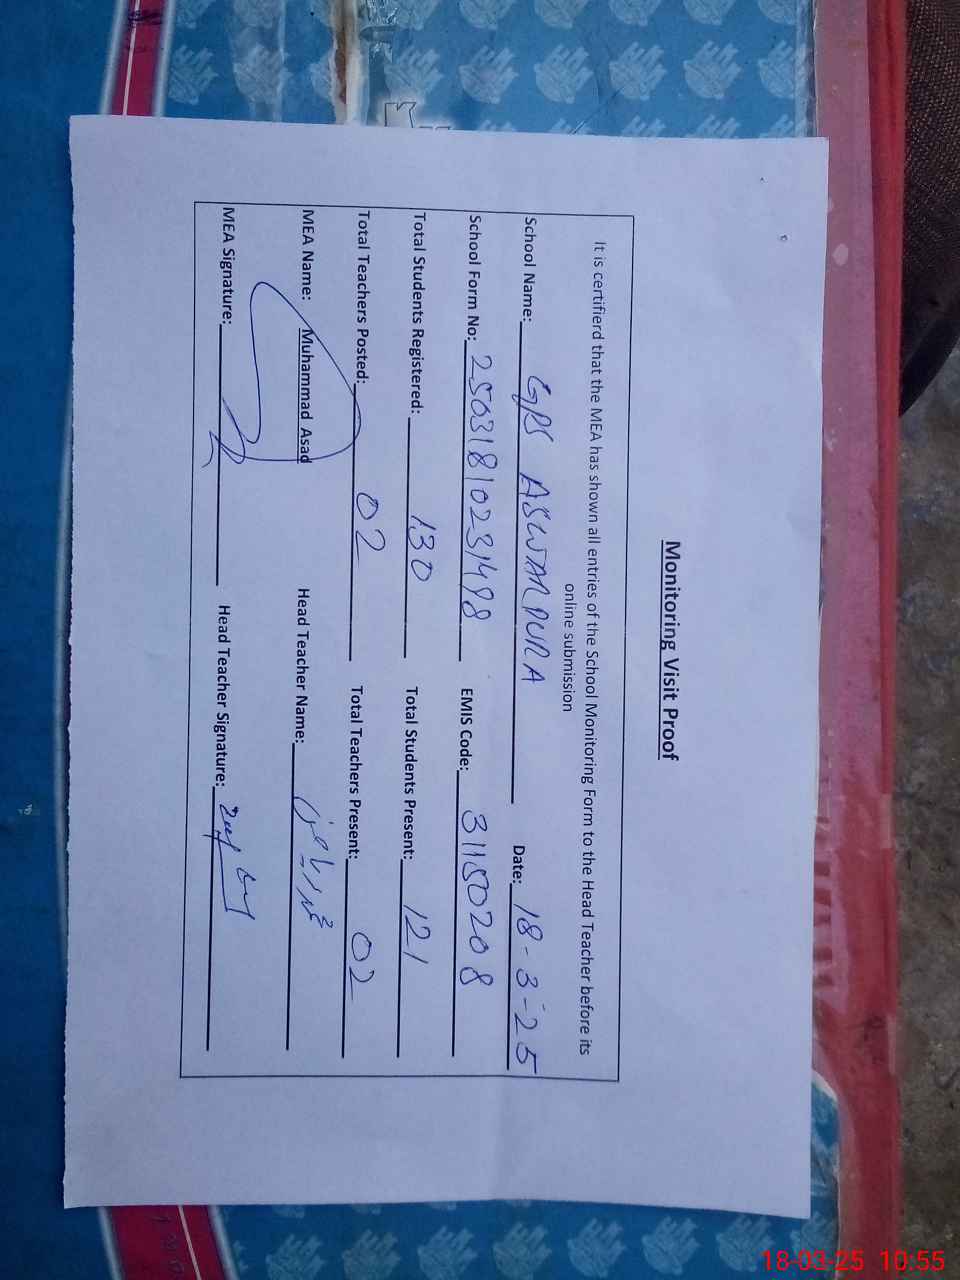 Monitoring Visit Proof
It is certifierd that the MEA has shown all entries of the School Monitoring Form to the Head Teacher before its
online submission
School Name: GPS ASWARPURA Date: 18-3-25
School Form No: 2503181023498 EMIS Code: 31150208
Total Students Registered: 130 Total Students Present: 121
Total Teachers Posted: 02 Total Teachers Present: 02
MEA Name: Muhammad Asad Head Teacher Name:
MEA Signature: Head Teacher Signature:
18-03-25 10:55